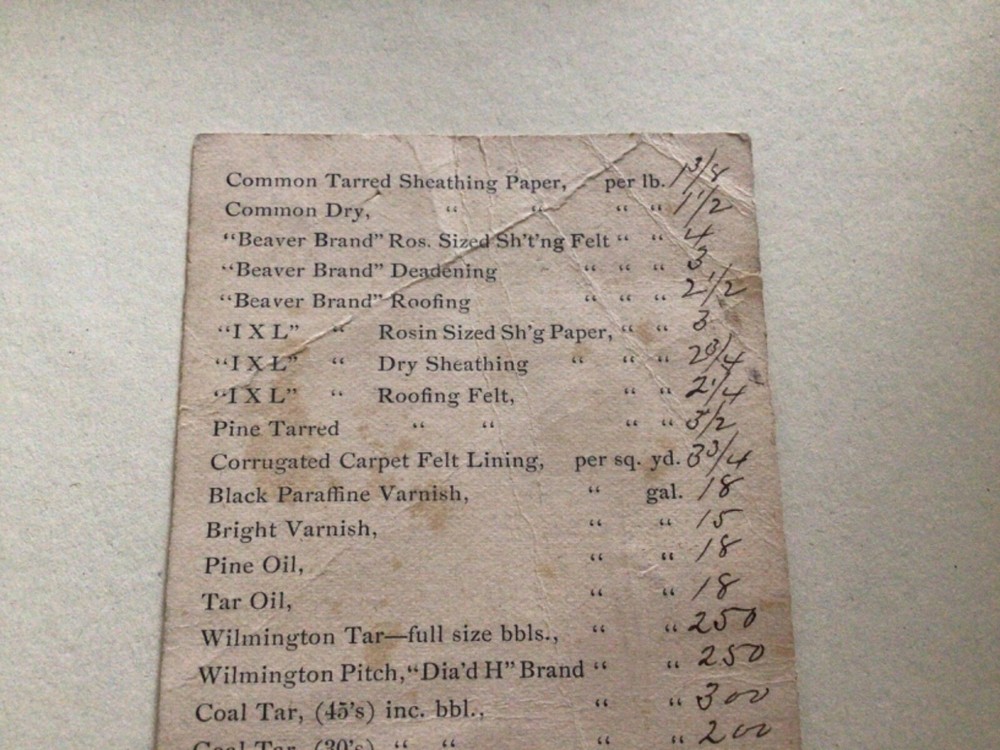 Common Tarred Sheathing Paper, - per lb. 1 3/4
Common Dry, “ “ “ “ 1 1/2
“Beaver Brand” Ros. Sized Sh't'ng Felt “ “ 4
“Beaver Brand” Deadening “ “ “ 3
“Beaver Brand” Roofing “ “ “ 2 1/2
“I X L” “ Rosin Sized Sh'g Paper, “ “ 3
“I X L” “ Dry Sheathing “ “ “ 2 3/4
“I X L” “ Roofing Felt, “ “ 2 1/4
Pine Tarred “ “ “ “ 3 1/2
Corrugated Carpet Felt Lining, per sq. yd. 3 3/4
Black Paraffine Varnish, “ gal. 18
Bright Varnish, “ “ 15
Pine Oil, “ “ 18
Tar Oil, “ “ 18
Wilmington Tar—full size bbls., “ “ 250
Wilmington Pitch, “Dia'd H” Brand “ “ 250
Coal Tar, (45's) inc. bbl., “ “ 300
Coal Tar, (30's) “ “ “ “ 200